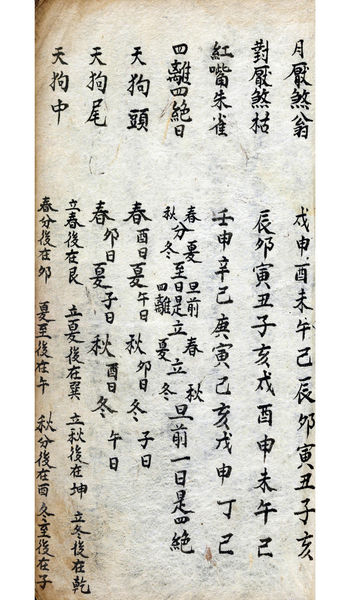 月厭煞翁 戌申酉未午己辰卯寅丑子亥
對厭煞枯 辰卯寅丑子亥戌酉申未午己
紅嘴朱雀 壬申辛己庚寅己亥戊申丁己
四離四絕日 春秋分夏冬至旦前日是四離立春夏立秋冬旦前一日是四絕
天狗頭 春酉日夏午日秋卯日冬子日
天狗尾 春卯日夏子日秋酉日冬午日
天狗中 立春後在艮 立夏後在巽 立秋後在坤 立冬後在乾
春分後在卯 夏至後在午 秋分後在酉 冬至後在子